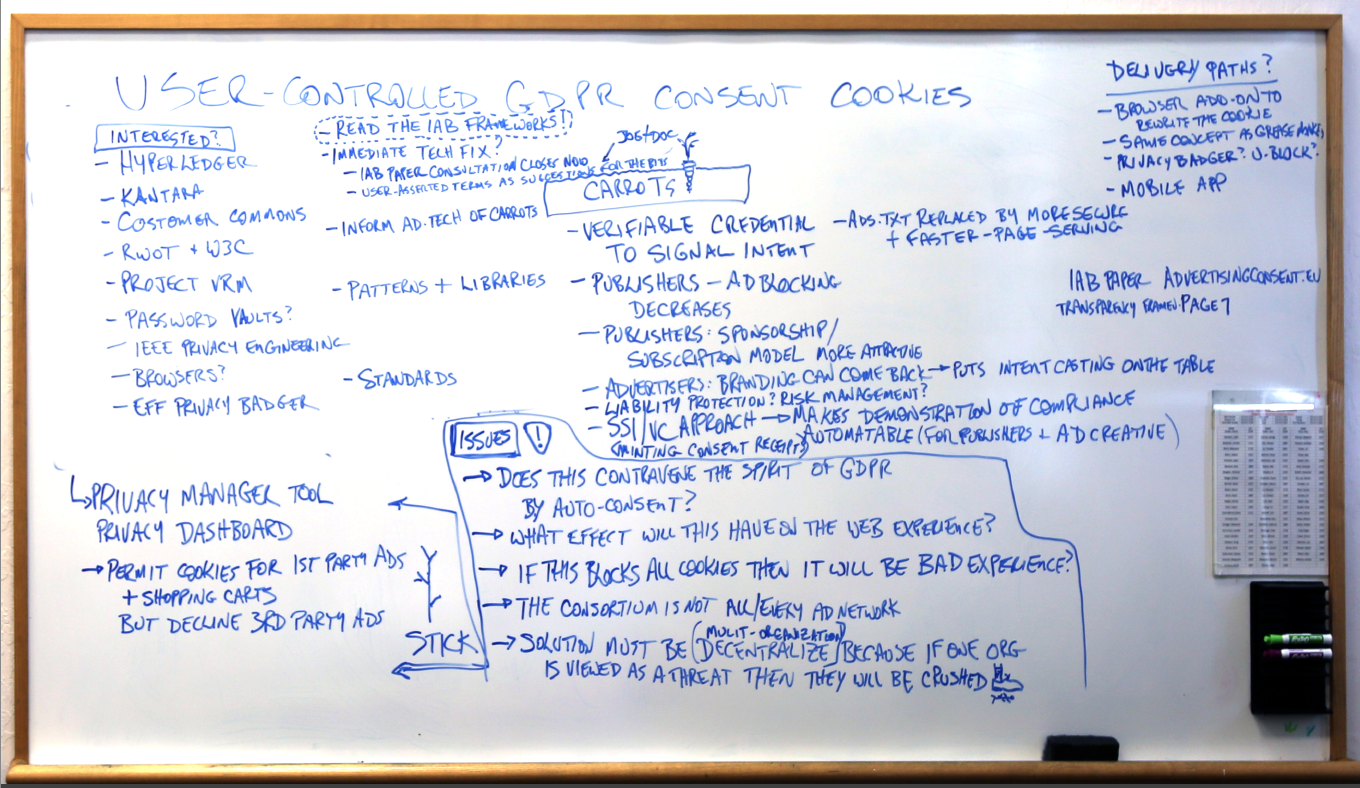 USER-CONTROLLED GDPR CONSENT COOKIES
INTERESTED?
- HYPERLEDGER
- KANTARA
- COSTOMER COMMONS
- RWOT + W3C
- PROJECT VRM
- PASSWORD VAULTS?
- IEEE PRIVACY ENGINEERING
- BROWSERS?
- EFF PRIVACY BADGER
- READ THE IAB FRAMEWORKS!
- IMMEDIATE TECH FIX?
- IAB PAPER CONSULTATION CLOSES NOW
- USER-ASSERTED TERMS AS SUGGESTIONS FOR THE BITS
- INFORM AD.TECH OF CARROTS
- PATTERNS + LIBRARIES
- STANDARDS
JOE+DOC
CARROTS
- VERIFIABLE CREDENTIAL
TO SIGNAL INTENT
- PUBLISHERS - AD BLOCKING
DECREASES
- PUBLISHERS: SPONSORSHIP/
SUBSCRIPTION MODEL MORE ATTRACTIVE
- ADVERTISERS: BRANDING CAN COME BACK → PUTS INTENT CASTING ON THE TABLE
- LIABILITY PROTECTION? RISK MANAGEMENT?
- SSI/VC APPROACH → MAKES DEMONSTRATION OF COMPLIANCE
(MINTING CONSENT RECEIPTS) AUTOMATABLE (FOR PUBLISHERS + AD CREATIVE)
- ADS.TXT REPLACED BY MORE SECURE
+ FASTER-PAGE-SERVING
DELIVERY PATHS?
- BROWSER ADD-ON TO
REWRITE THE COOKIE
- SAME CONCEPT AS GREASE MONKEY
- PRIVACY BADGER? U-BLOCK?
- MOBILE APP
IAB PAPER ADVERTISINGCONSENT.EU
TRANSPARENCY FRAMEW. PAGE 7
ISSUES !
→ DOES THIS CONTRAVENE THE SPIRIT OF GDPR
BY AUTO-CONSENT?
→ WHAT EFFECT WILL THIS HAVE ON THE WEB EXPERIENCE?
→ IF THIS BLOCKS ALL COOKIES THEN IT WILL BE BAD EXPERIENCE?
→ THE CONSORTIUM IS NOT ALL/EVERY AD NETWORK
→ SOLUTION MUST BE (MULIT-ORGANIZATION)
(DECENTRALIZE) BECAUSE IF ONE ORG
IS VIEWED AS A THREAT THEN THEY WILL BE CRUSHED
↳ PRIVACY MANAGER TOOL
PRIVACY DASHBOARD
→ PERMIT COOKIES FOR 1ST PARTY ADS
+ SHOPPING CARTS
BUT DECLINE 3RD PARTY ADS
STICK